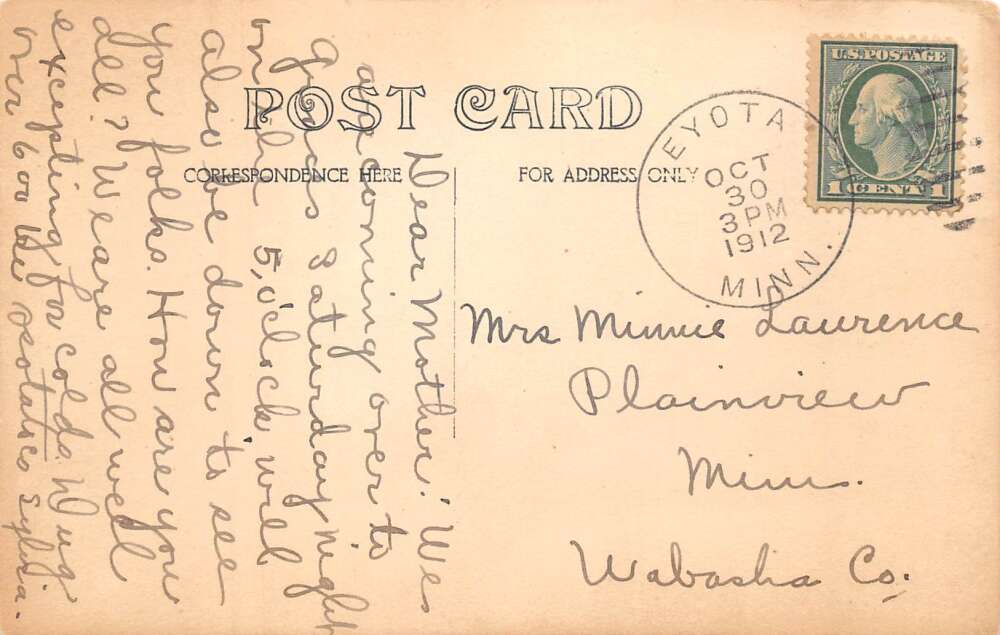 POST CARD
CORRESPONDENCE HERE
FOR ADDRESS ONLY
U.S. POSTAGE
1 CENT 1
EYOTA
OCT
30
3 PM
1912
MINN.
Mrs Minnie Laurence
Plainview
Minn.
Wabasha Co.
Dear Mother: We
are coming over to
Saturday night
on the 5, o'clock will
also be down to see
you folks. How are you
all? We are all well
excepting for colds. Dug
our 600 bu potatoes Sylvia.